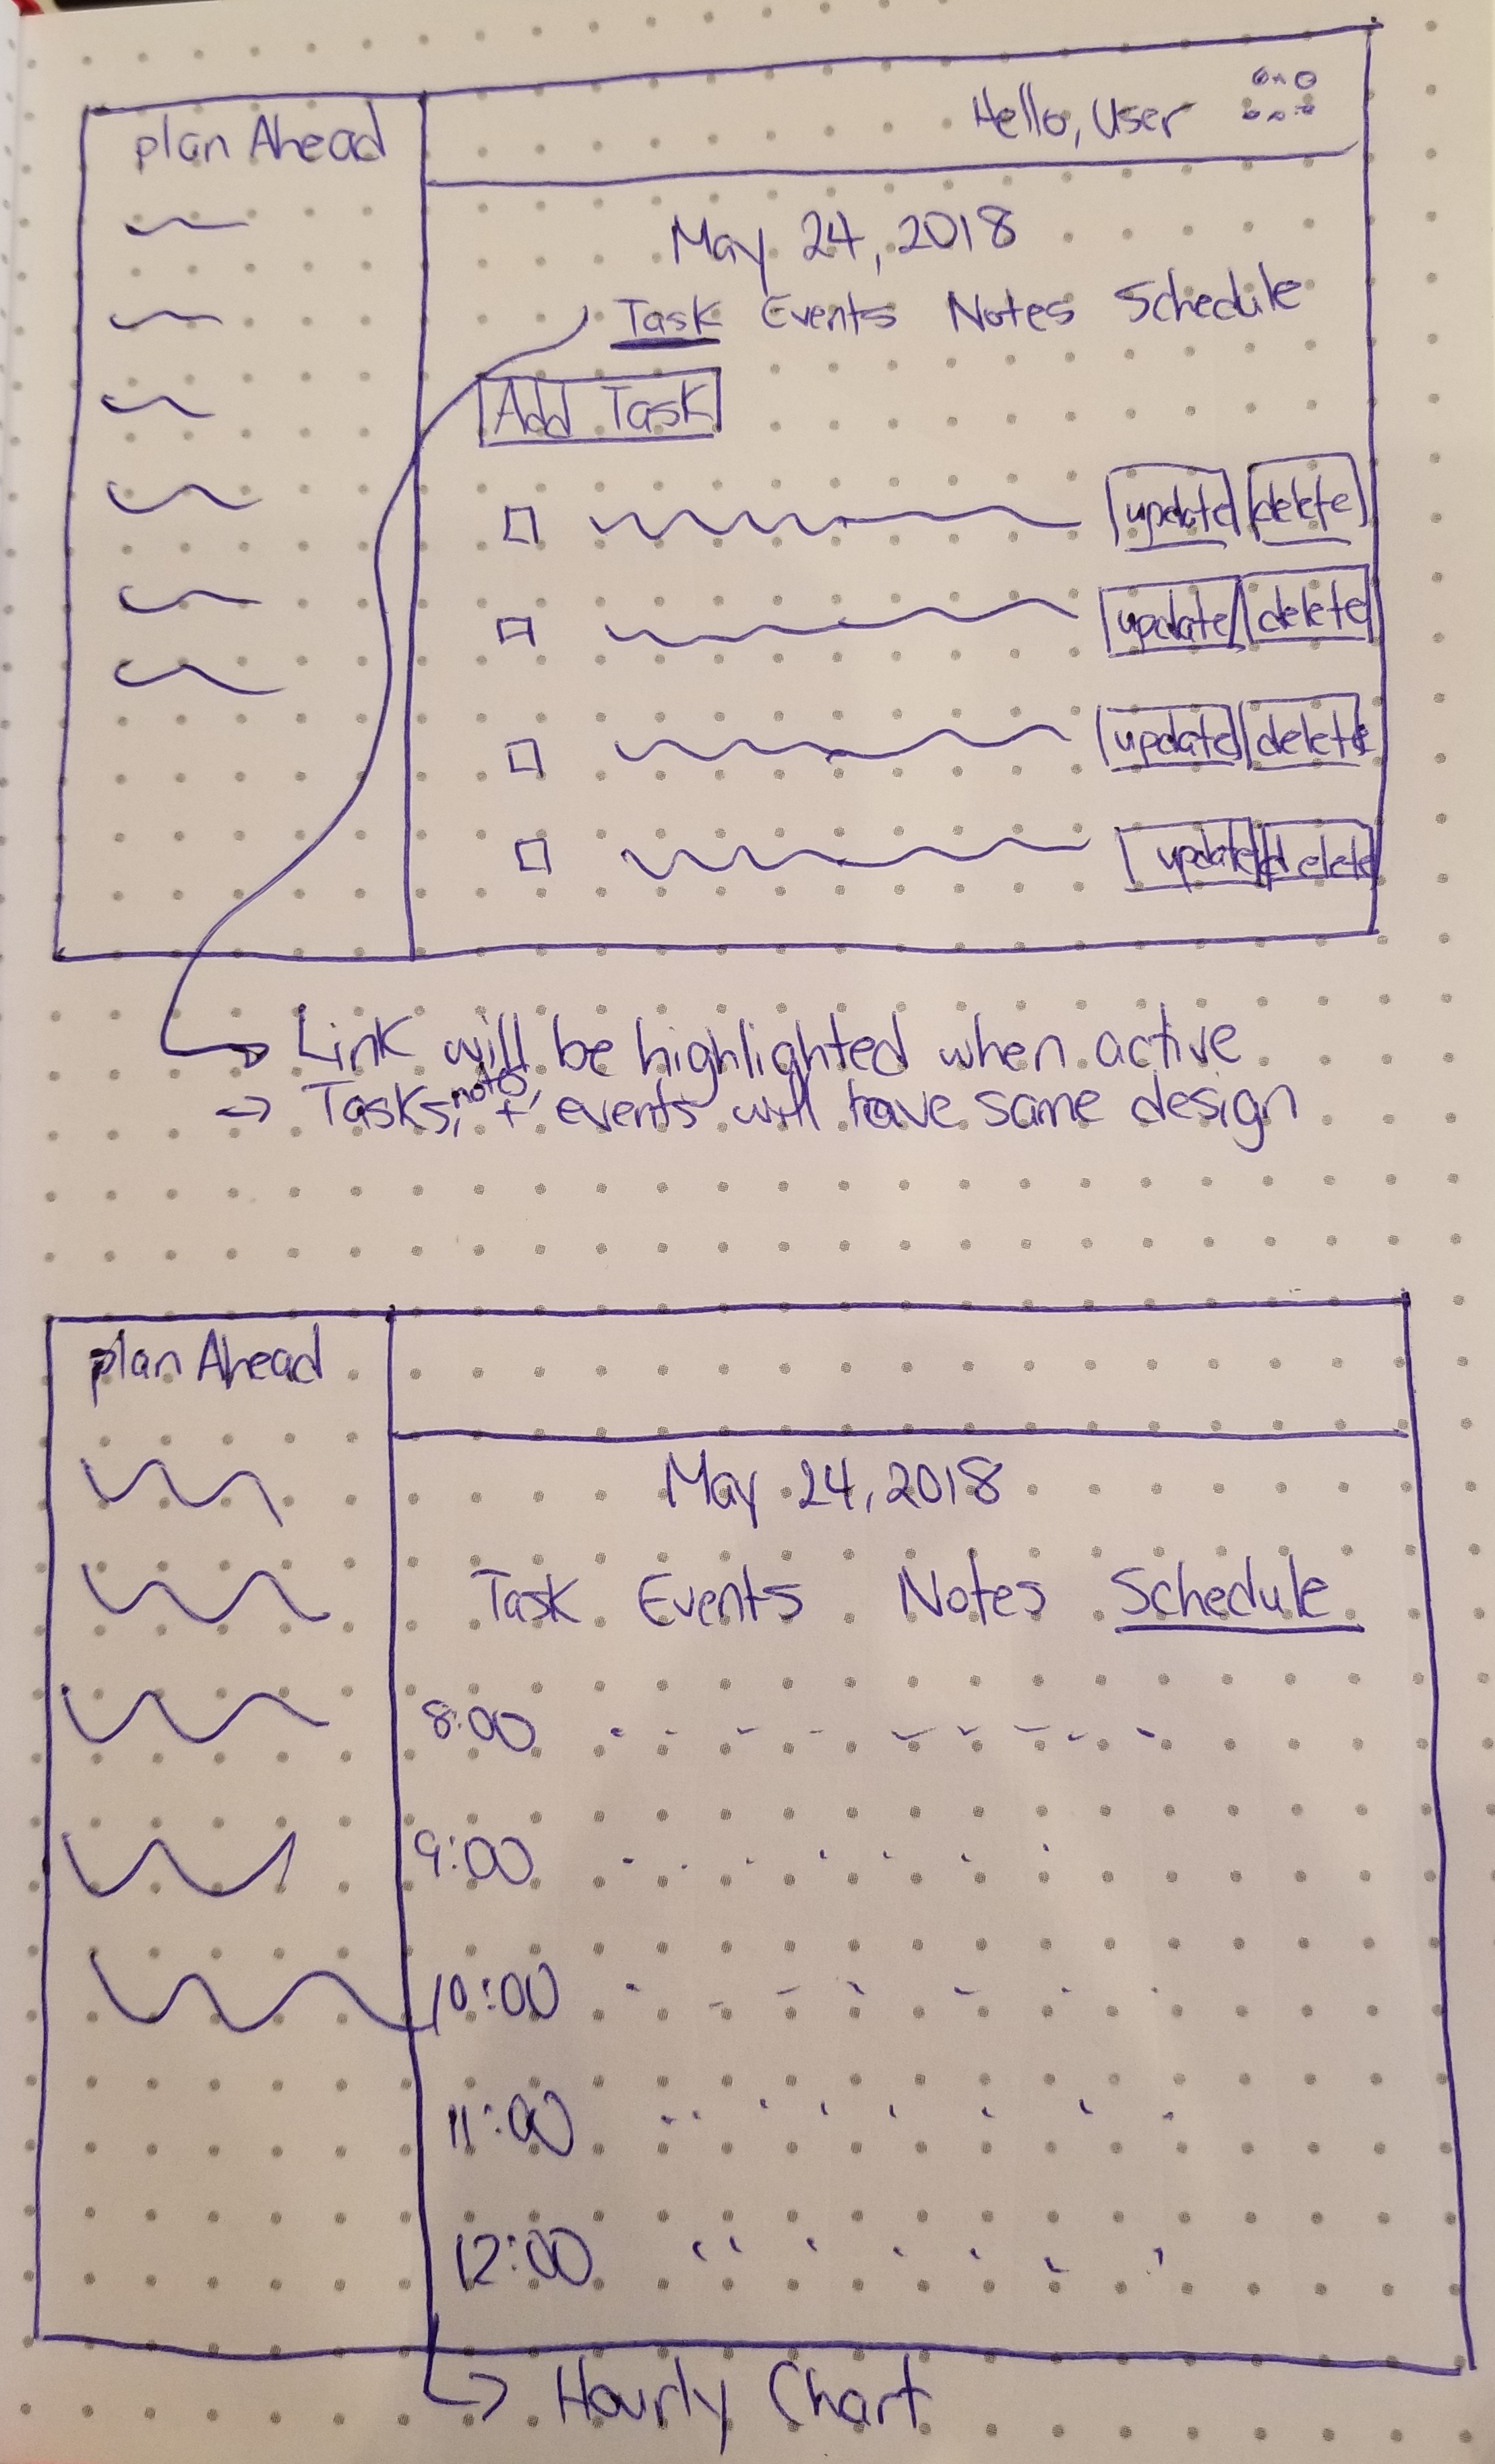 plan Ahead
Hello, User
May 24, 2018
Task Events Notes Schedule
Add Task
update delete
update delete
update delete
update delete
Link will be highlighted when active
→ Tasks, notes, + events will have same design
plan Ahead
May 24, 2018
Task Events Notes Schedule
8:00
9:00
10:00
11:00
12:00
Hourly Chart